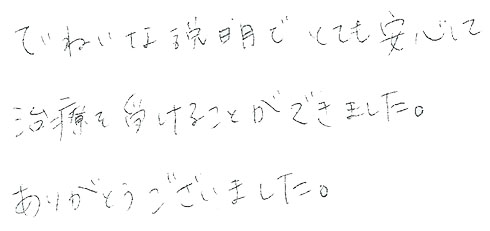 ていねいな説明でとても安心して
治療を受けることができました。
ありがとうございました。